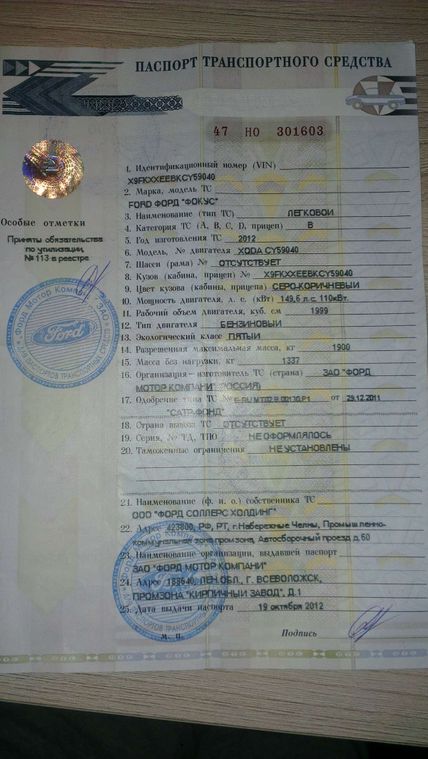 ПАСПОРТ ТРАНСПОРТНОГО СРЕДСТВА
47 НО 301603
Особые отметки
Приняты обязательства
по утилизации,
№ 113 в реестре
Ford
1. Идентификационный номер (VIN)
X9FKXXEEBKCY59040
2. Марка, модель ТС
FORD ФОРД "ФОКУС"
3. Наименование (тип ТС) ЛЕГКОВОЙ
4. Категория ТС (A, B, C, D, прицеп) B
5. Год изготовления ТС 2012
6. Модель, № двигателя XQDA CY59040
7. Шасси (рама) № ОТСУТСТВУЕТ
8. Кузов (кабина, прицеп) № X9FKXXEEBKCY59040
9. Цвет кузова (кабины, прицепа) СЕРО-КОРИЧНЕВЫЙ
10. Мощность двигателя, л. с. (кВт) 149,6 л.с. 110кВт.
11. Рабочий объем двигателя, куб. см 1999
12. Тип двигателя БЕНЗИНОВЫЙ
13. Экологический класс ПЯТЫЙ
14. Разрешенная максимальная масса, кг 1900
15. Масса без нагрузки, кг 1337
16. Организация–изготовитель ТС (страна) ЗАО "ФОРД
МОТОР КОМПАНИ" (РОССИЯ)
17. Одобрение типа ТС № от 29.12.2011
"САТР-ФОНД"
18. Страна вывоза ТС ОТСУТСТВУЕТ
19. Серия, № ТД, ТПО НЕ ОФОРМЛЯЛОСЬ
20. Таможенные ограничения НЕ УСТАНОВЛЕНЫ
21. Наименование (ф. и. о.) собственника ТС
ООО "ФОРД СОЛЛЕРС ХОЛДИНГ"
22. Адрес 423800, РФ, РТ, г.Набережные Челны, Промышленно-
коммунальная зона промзона, Автосборочный проезд д.60
23. Наименование организации, выдавшей паспорт
ЗАО "ФОРД МОТОР КОМПАНИ"
24. Адрес 188640, ЛЕН.ОБЛ., Г. ВСЕВОЛОЖСК,
ПРОМЗОНА "КИРПИЧНЫЙ ЗАВОД", Д.1
25. Дата выдачи паспорта 19 октября 2012
М. П. Подпись